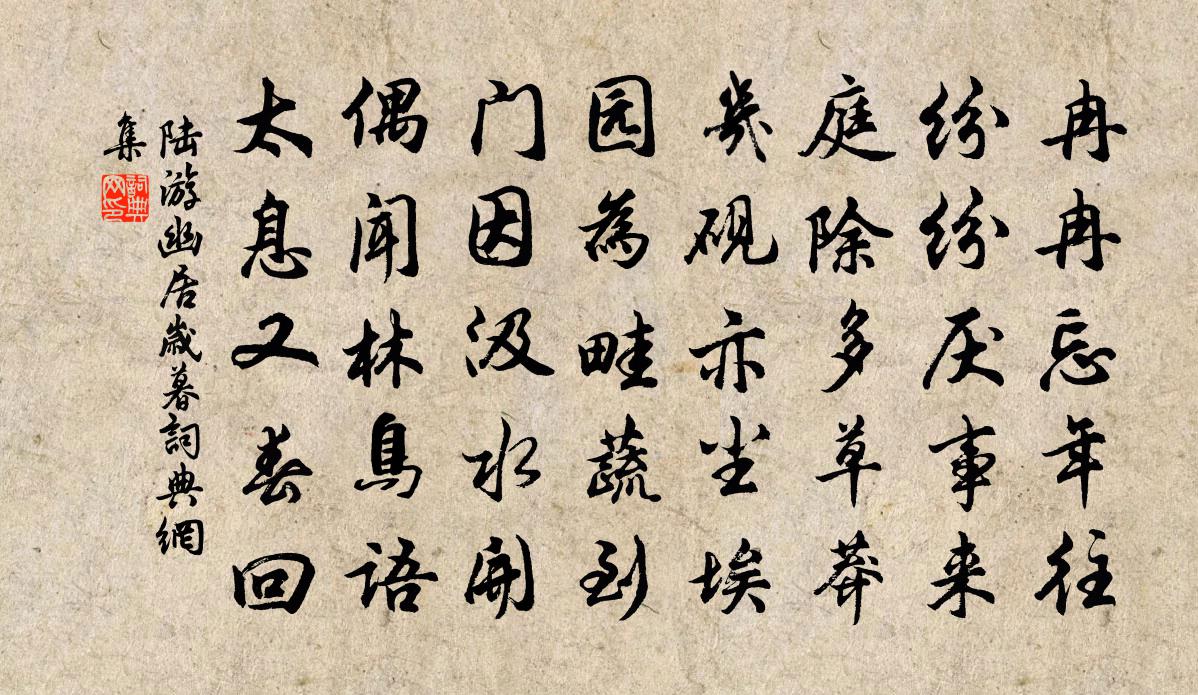 冉冉忘年往
纷纷厌事来
庭除多草莽
几砚亦尘埃
园为畦蔬到
门因汲水开
偶闻林鸟语
太息又春回
陆游幽居岁暮詞典網
集
詞典
网印